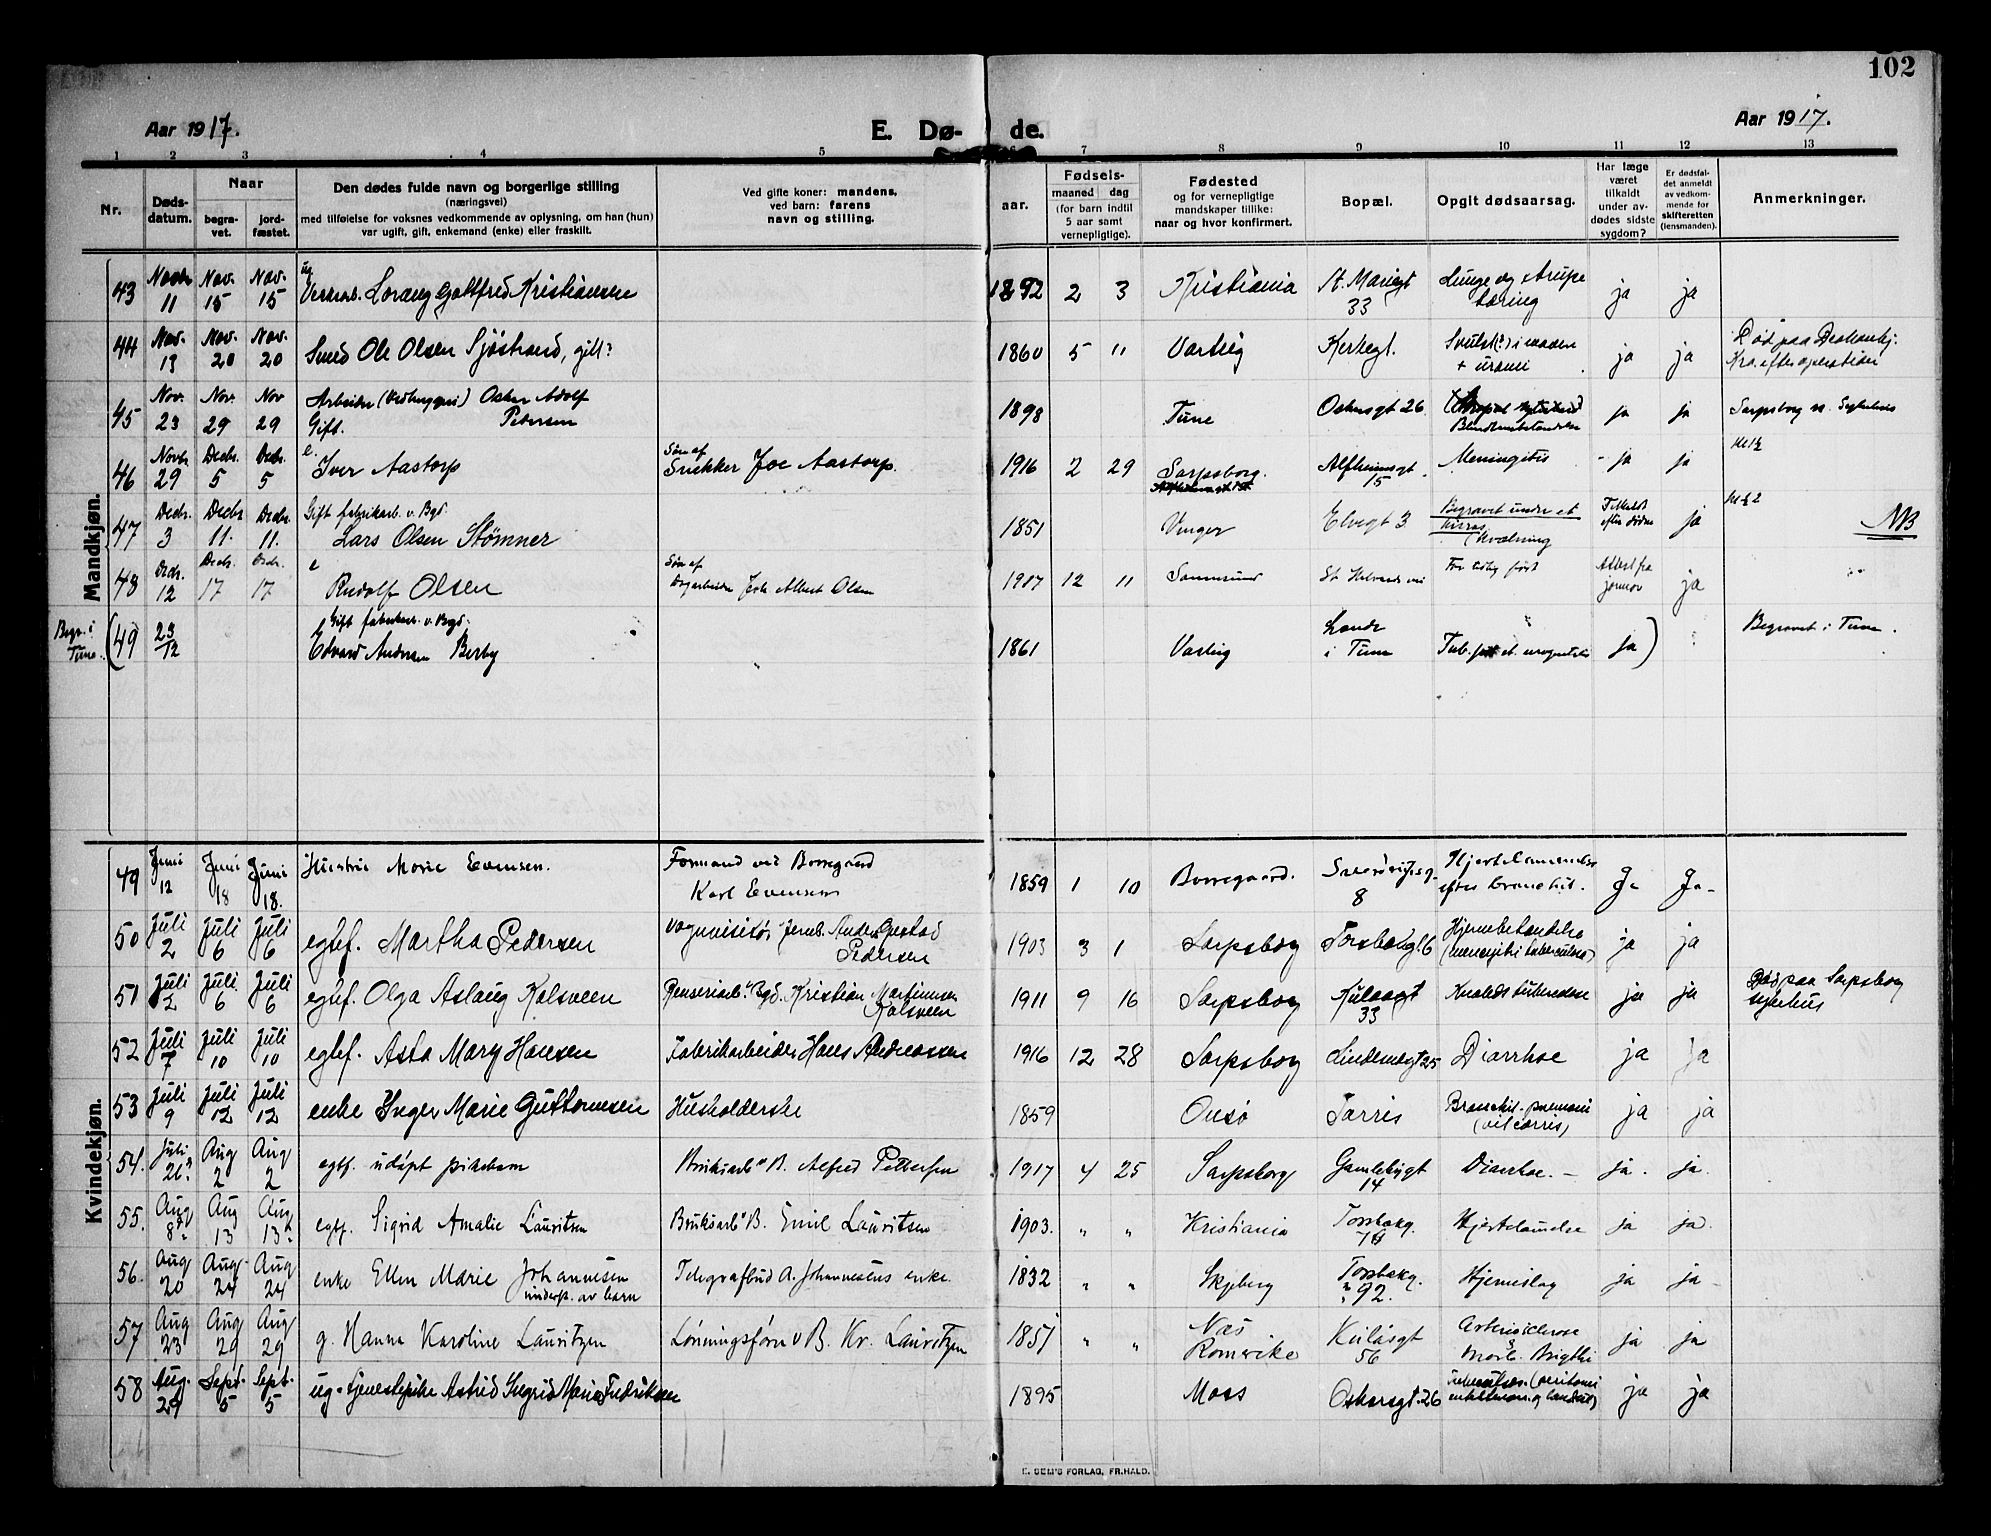 102
Aar 1917.
E. Dø-
de.
Aar 1917.
1 2 3 4 5 6 7 8 9 10 11 12 13
Nr.
Døds-
datum.
Naar
begra-
vet.
jord-
fæstet.
Den dødes fulde navn og borgerlige stilling
(næringsvei)
med tilføielse for voksnes vedkommende av oplysning, om han (hun)
var ugift, gift, enkemand (enke) eller fraskilt.
Ved gifte koner: mandens,
ved barn: farens
navn og stilling.
Fødsels-
aar.
maaned dag
(for barn indtil
5 aar samt
vernepligtige).
Fødested
og for vernepligtige
mandskaper tillike:
naar og hvor konfirmert.
Bopæl.
Opgit dødsaarsag.
Har læge
været
tilkaldt
under av-
dødes sidste
sygdom?
Er dødsfal-
det anmeldt
av vedkom-
mende for
skifteretten
(lensmanden).
Anmerkninger.
Mandkjøn.
43 Novbr 11 Nov. 15 Nov. 15 ug Lorang Gottfred Kristiansen 1892 2 3 Kristiania St. Mariegt 33 Lunge og strupe tæring ja ja
44 Nov. 13 Nov. 20 Nov. 20 Smed Ole Olsen Sjøstrand, gift? 1860 5 11 Varteig Kirkegt. + uræmi ja ja Død paa Kra. efter operation
45 Nov. 23 Nov. 29 Nov 29 Arbeider Oskar Adolf Petersen Gift. 1898 Tune Oskarsgt 26 ja ja Sarpsborg
46 Novbr. 29 Decbr. 5 Decbr. 5 e. Iver Aastorp Søn af Snekker Joe Aastorp. 1916 2 29 Sarpsborg. Alfheimsgt 15 Meningitis - ja ja
47 Decbr. 3 Decbr 11. Decbr. 11. Gift fabrikarb. v. Bgd. Lars Olsen Stømner 1851 Vinger Elvegt 3 Begravet under et kisras (kvælning Tilkaldt efter døden ja NB
48 Decbr. 12 Decbr. 17 Decbr. 17 e Rudolf Olsen Søn af Albert Olsen 1917 12 11 Sannesund For tidlig født Attest fra jormor ja
Begr. i Tune. (49 23/12 Gift fabrikar. v. Bgd. Edvard Andersen Berby 1861 Varteig Lande i Tune ja) Begravet i Tune.
Kvindekjøn.
49 Juni 12 Juni 18 Juni 18. Hustru Marie Evensen. Formand ved Borregaard Karl Evensen 1859 1 10 Borregaard. 8 efter Ja Ja-
50 Juli 2 Juli 6 Juli 6 egtef. Martha Pedersen Vognvisitør Jernb. Pedersen 1903 3 1 Sarpsborg Torsbækgt. 6 Hjernebetændelse ja ja
51 Juli 2 Juli 6 Juli 6 egtef. Olga Aslaug Kolsveen Renseriarb. Bgd. Kristian Martinusen Kolsveen 1911 9 16 Sarpsborg Kulaasgt 33 ja ja Død paa Sarpsborg sykehus
52 Juli 7 Juli 10 Juli 10 egtef. Asta Mary Hansen Fabrikarbeider Hans Andreassen 1916 12 28 Sarpsborg 25 Diarrhoe ja ja
53 Juli 9 Juli 12 Juli 12 enke Inger Marie Guttormsen Husholderske 1859 Onsø Tarris ja ja
54. Juli 26. Aug 2 Aug 2 egtf. udøpt pikebarn Bruksarb. B. Alfred Pettersen 1917 4 25 Sarpsborg Gamlebygt 14 Diarrhoe. - ja. ja.
55. Aug 8 Aug 13 Aug 13 egtf. Sigrid Amalie Lauritsen Bruksarb. B. Emil Lauritsen 1903. " " Kristiania Torsbækg. ja ja.
56. Aug 20 Aug. 24 Aug 24 enke Ellen Marie Johannesen underst. av barn Telegrafbud A. Johannesens enke. 1832 " " Skjeberg Torsbækg. 92. Hjerneslag ja ja-
57 Aug 23 Aug 29 Aug 29 g. Hanna Karoline Lauritzen Lønningsfører v B. Kr. Lauritzen 1851 " " Næs Romerike Kulåsgt 56 Arteriosclerose & Morb. Brigthi ja ja
58 Aug. 29 Sept. 5 Sept. 5 ug. tjenestepike Astrid Ingrid Marie Fredriksen 1895 Moss Oskarsgt. 26 ja ja
E. SEM'S FORLAG, FR.HALD.